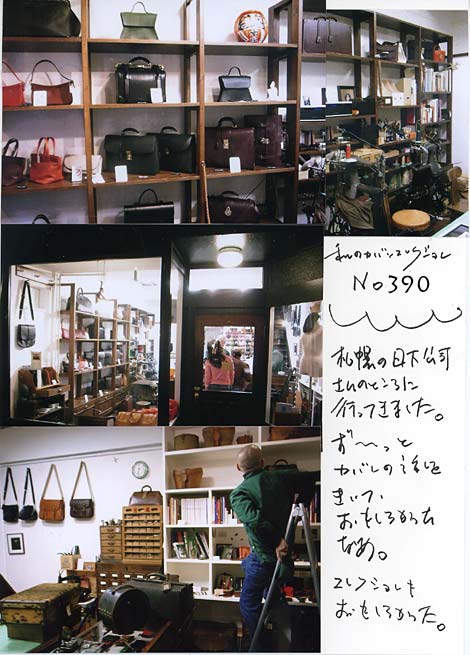 私のカバンコレクション
No390
札幌の日下公司
さんのところに
行ってきました。
ず〜っと
カバンの話しを
きいて、
おもしろかった
なあ。
コレクションも
おもしろかった。